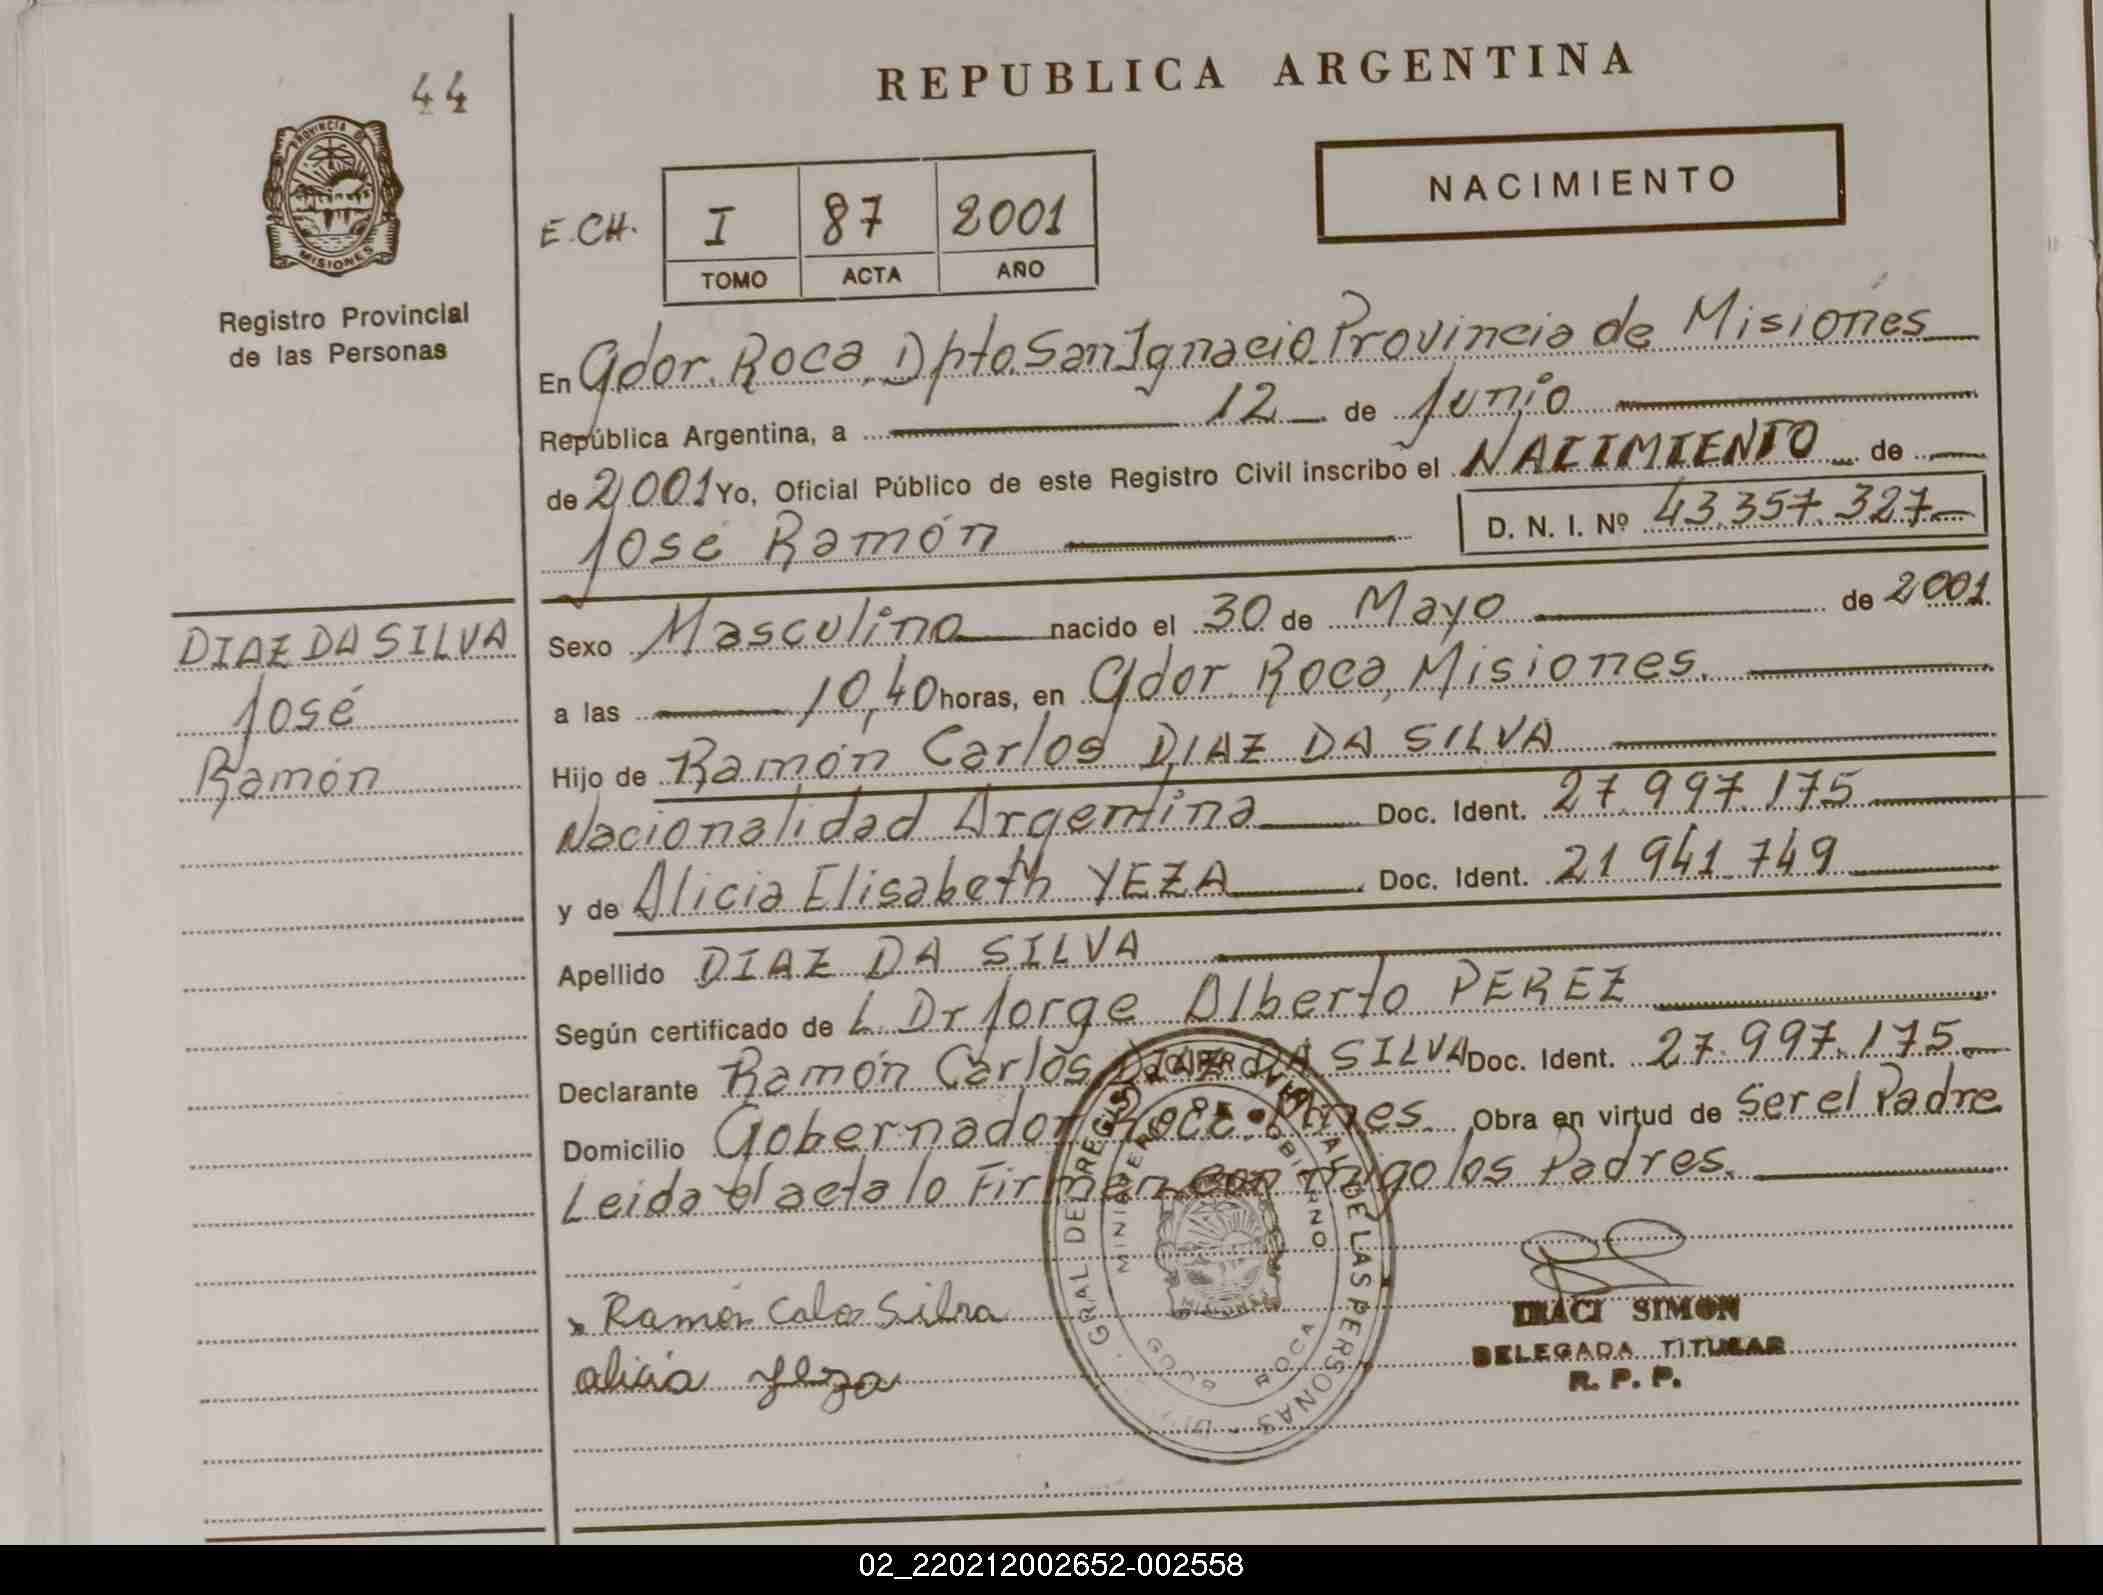 44
REPUBLICA ARGENTINA
PROVINCIA DE
MISIONES
Registro Provincial
de las Personas
E.CH.
I 87 2001
TOMO ACTA AÑO
NACIMIENTO
En Gdor. Roca, Dpto. San Ignacio Provincia de Misiones
República Argentina, a 12 de Junio
de 2,001 Yo, Oficial Público de este Registro Civil inscribo el NACIMIENTO de
José Ramón D. N. I. Nº 43.357.327
DIAZ DA SILVA
José
Ramón
Sexo Masculino nacido el 30 de Mayo de 2001
a las 10,40 horas, en Gdor. Roca, Misiones.
Hijo de Ramón Carlos DIAZ DA SILVA
Nacionalidad Argentina Doc. Ident. 27.997.175
y de Alicia Elisabeth YEZA Doc. Ident. 21 941.749
Apellido DIAZ DA SILVA
Según certificado de L. Dr Jorge Alberto PEREZ
Declarante Ramón Carlos DIAZ DA SILVA Doc. Ident. 27.997.175
Domicilio Gobernador Roca Obra en virtud de Ser el Padre
Leida el acta lo Firman conmigo los Padres.
GRAL DEL REGIS DE LAS PERSONAS
MINISTERIO GOBIERNO
MISIONES
ROCA
Ramón Calo Silva
alicia yeza
IRACI SIMON
DELEGADA TITULAR
R. P. P.
02_220212002652-002558